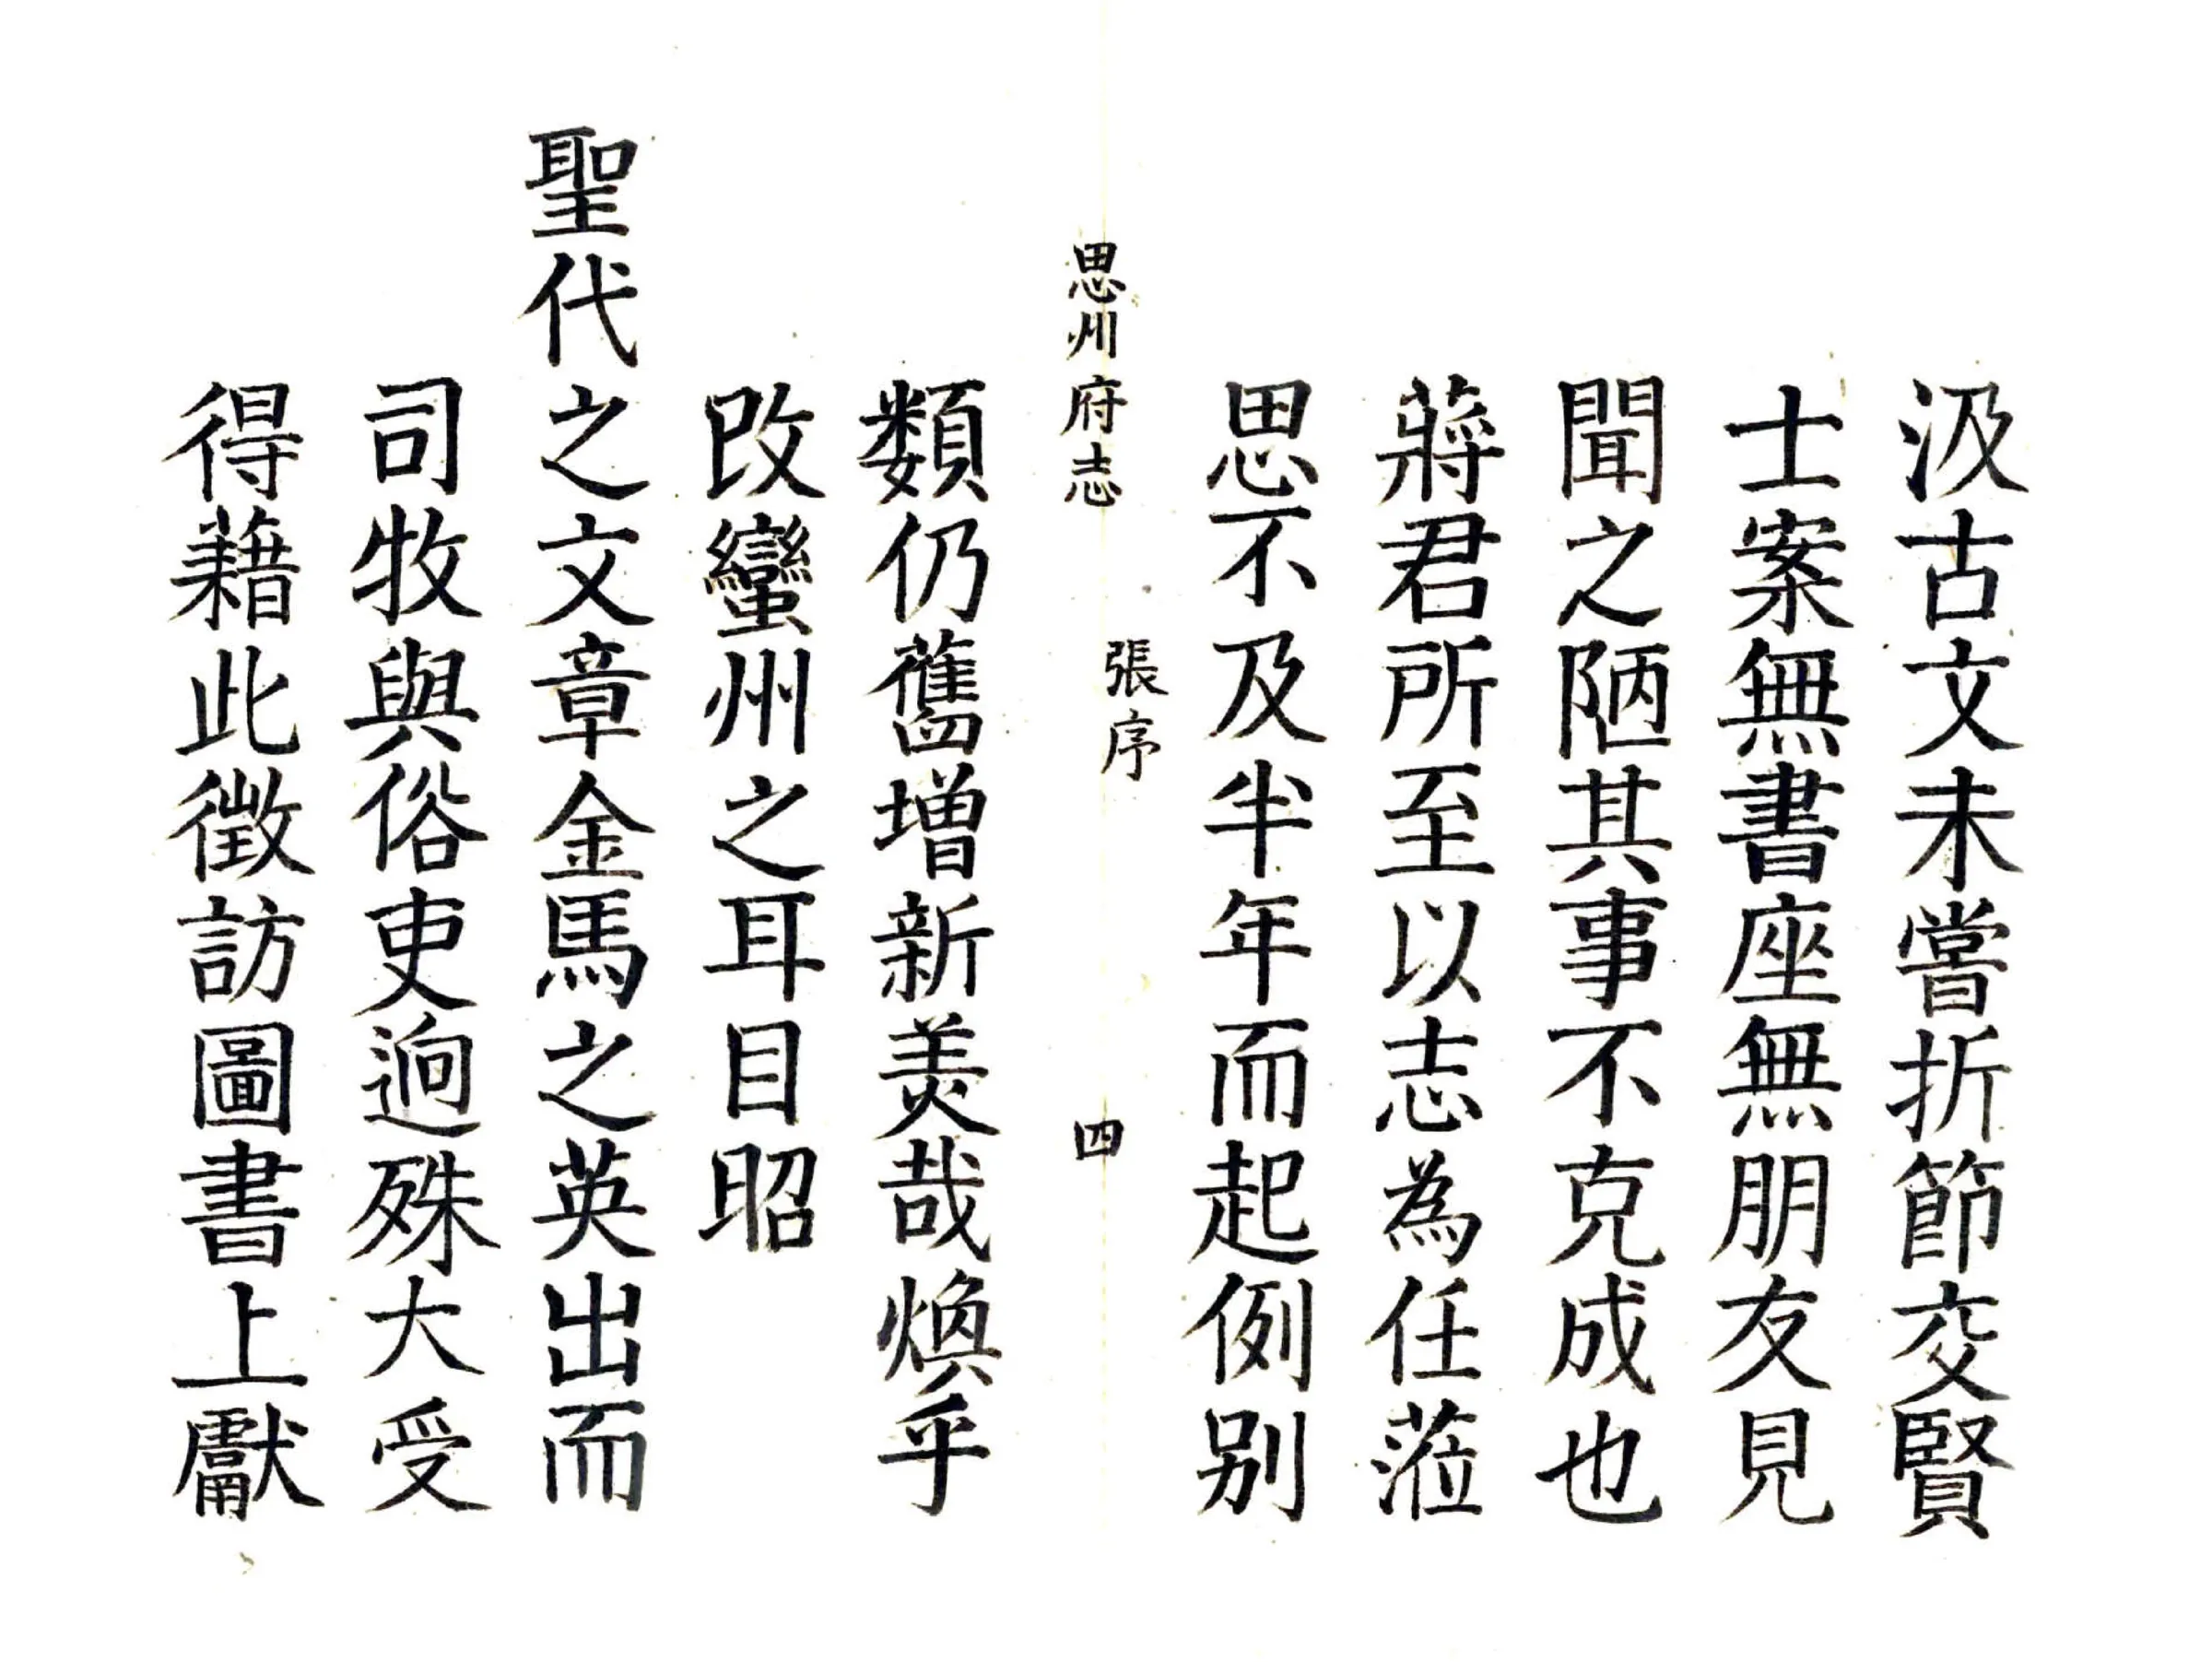 汲古文未嘗折節交賢
士案無書座無朋友見
聞之陋其事不克成也
蔣君所至以志為任蒞
思不及半年而起例别
思州府志 張序 四
類仍舊增新美哉煥乎
改蠻州之耳目昭
聖代之文章金馬之英出而
司牧與俗吏迥殊大受
得藉此徵訪圖書上獻